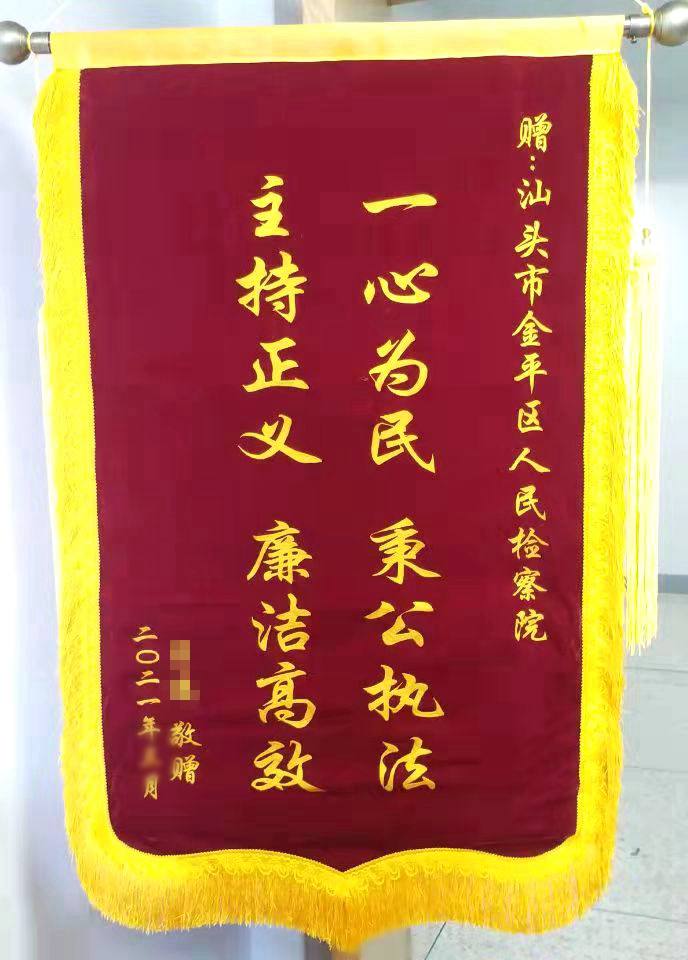 赠：汕头市金平区人民检察院
一心为民 秉公执法
主持正义 廉洁高效
敬赠
二〇二一年五月